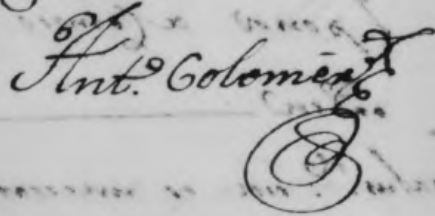 Ant.º Colomér